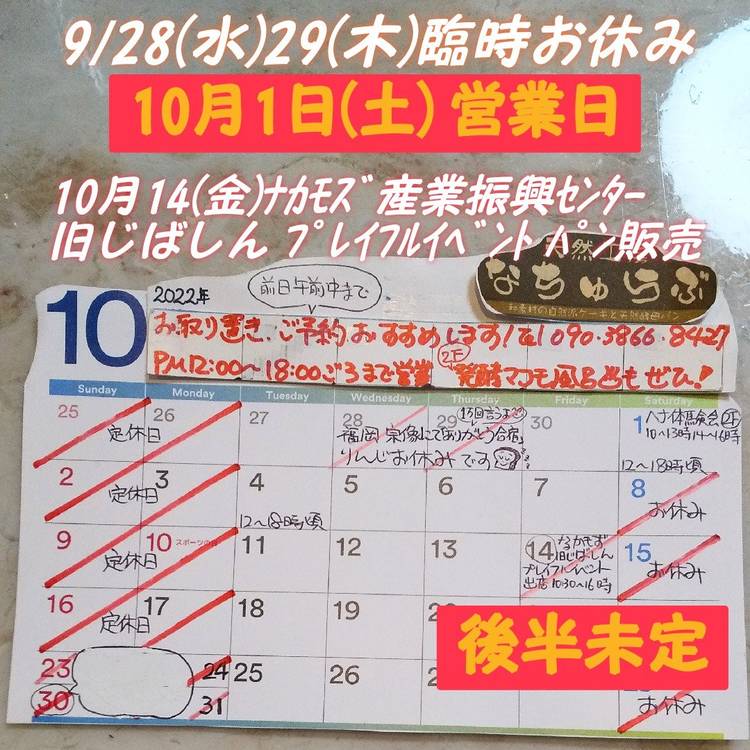 9/28(水)29(木)臨時お休み
10月1日(土)営業日
10月14(金)ﾅｶﾓｽﾞ産業振興ｾﾝﾀｰ
旧じばしん ﾌﾟﾚｲﾌﾙｲﾍﾞﾝﾄ パン販売
なちゅらぶ
10
2022年
前日午前中まで
お取り置き、ご予約おすすめします!tel 090.3866.8427
PM12:00〜18:00ごろまで営業 2F 発酵マコモ風呂もぜひ!
Sunday Monday Tuesday Wednesday Thursday Friday Saturday
25 26 27 28 29 30 1
定休日
福岡宗像にてありがとう合宿
りんじお休みです
10〜13時14〜16時
12〜18時頃
2 3 4 5 6 7 8
定休日
12〜18時頃
お休み
9 10 スポーツの日 11 12 13 14 15
定休日
なかもず
旧じばしん
プレイフルイベント
出店10:30〜16時
お休み
16 17 18 19 20
定休日
後半未定
23 24 25 26 27
30 31
お休み